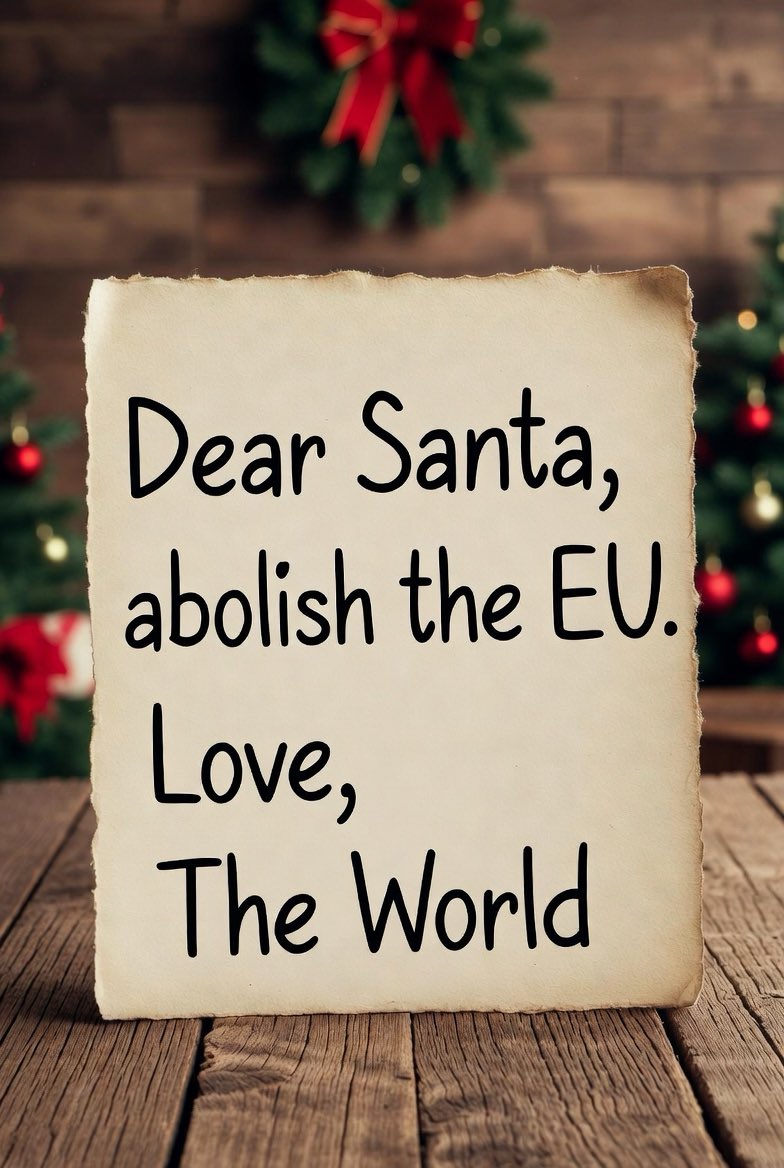 Dear Santa,
abolish the EU.
Love,
The World